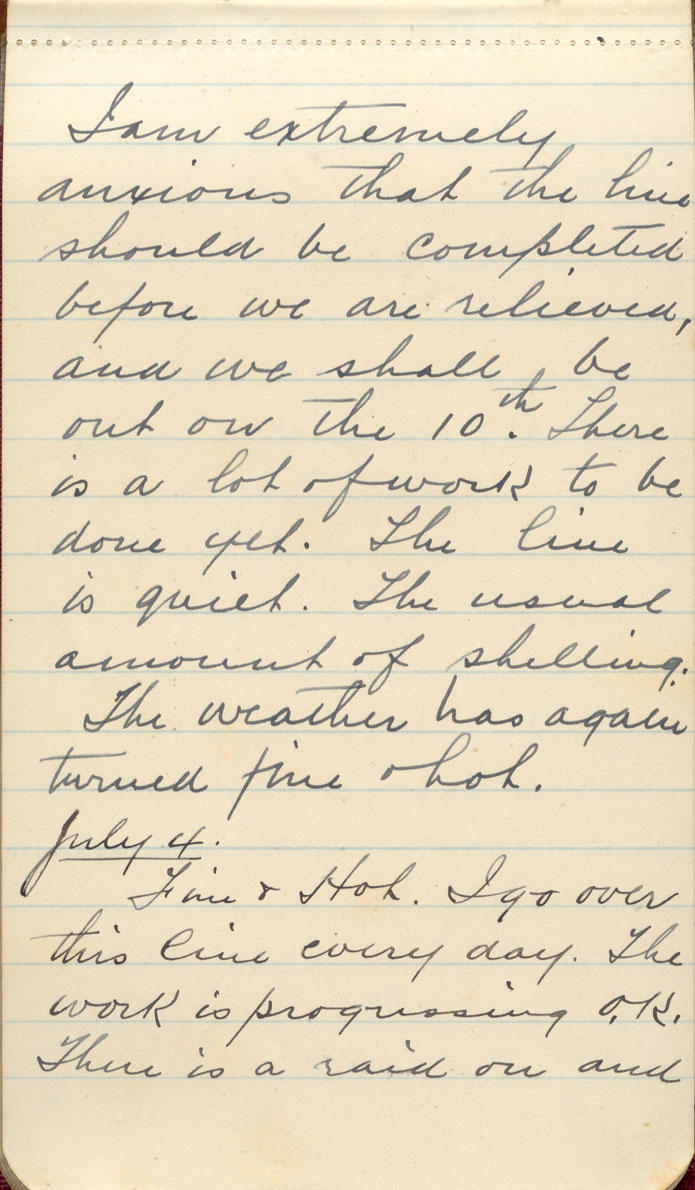 I am extremely
anxious that the line
should be completed
before we are relieved,
and we shall be
out on the 10th. There
is a lot of work to be
done yet. The line
is quiet. The usual
amount of shelling.
The weather has again
turned fine & hot.
July 4.
Fine & Hot. I go over
this line every day. The
work is progressing O.K.
There is a raid on and